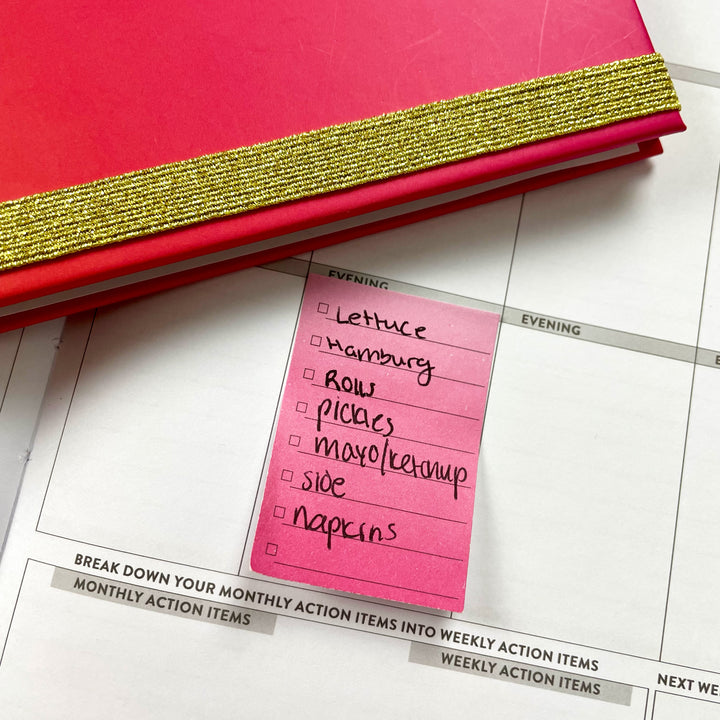 EVENING
EVENING
Lettuce
Hamburg
Rolls
pickles
mayo/ketchup
side
napkins
BREAK DOWN YOUR MONTHLY ACTION ITEMS INTO WEEKLY ACTION ITEMS
MONTHLY ACTION ITEMS
WEEKLY ACTION ITEMS
NEXT WE